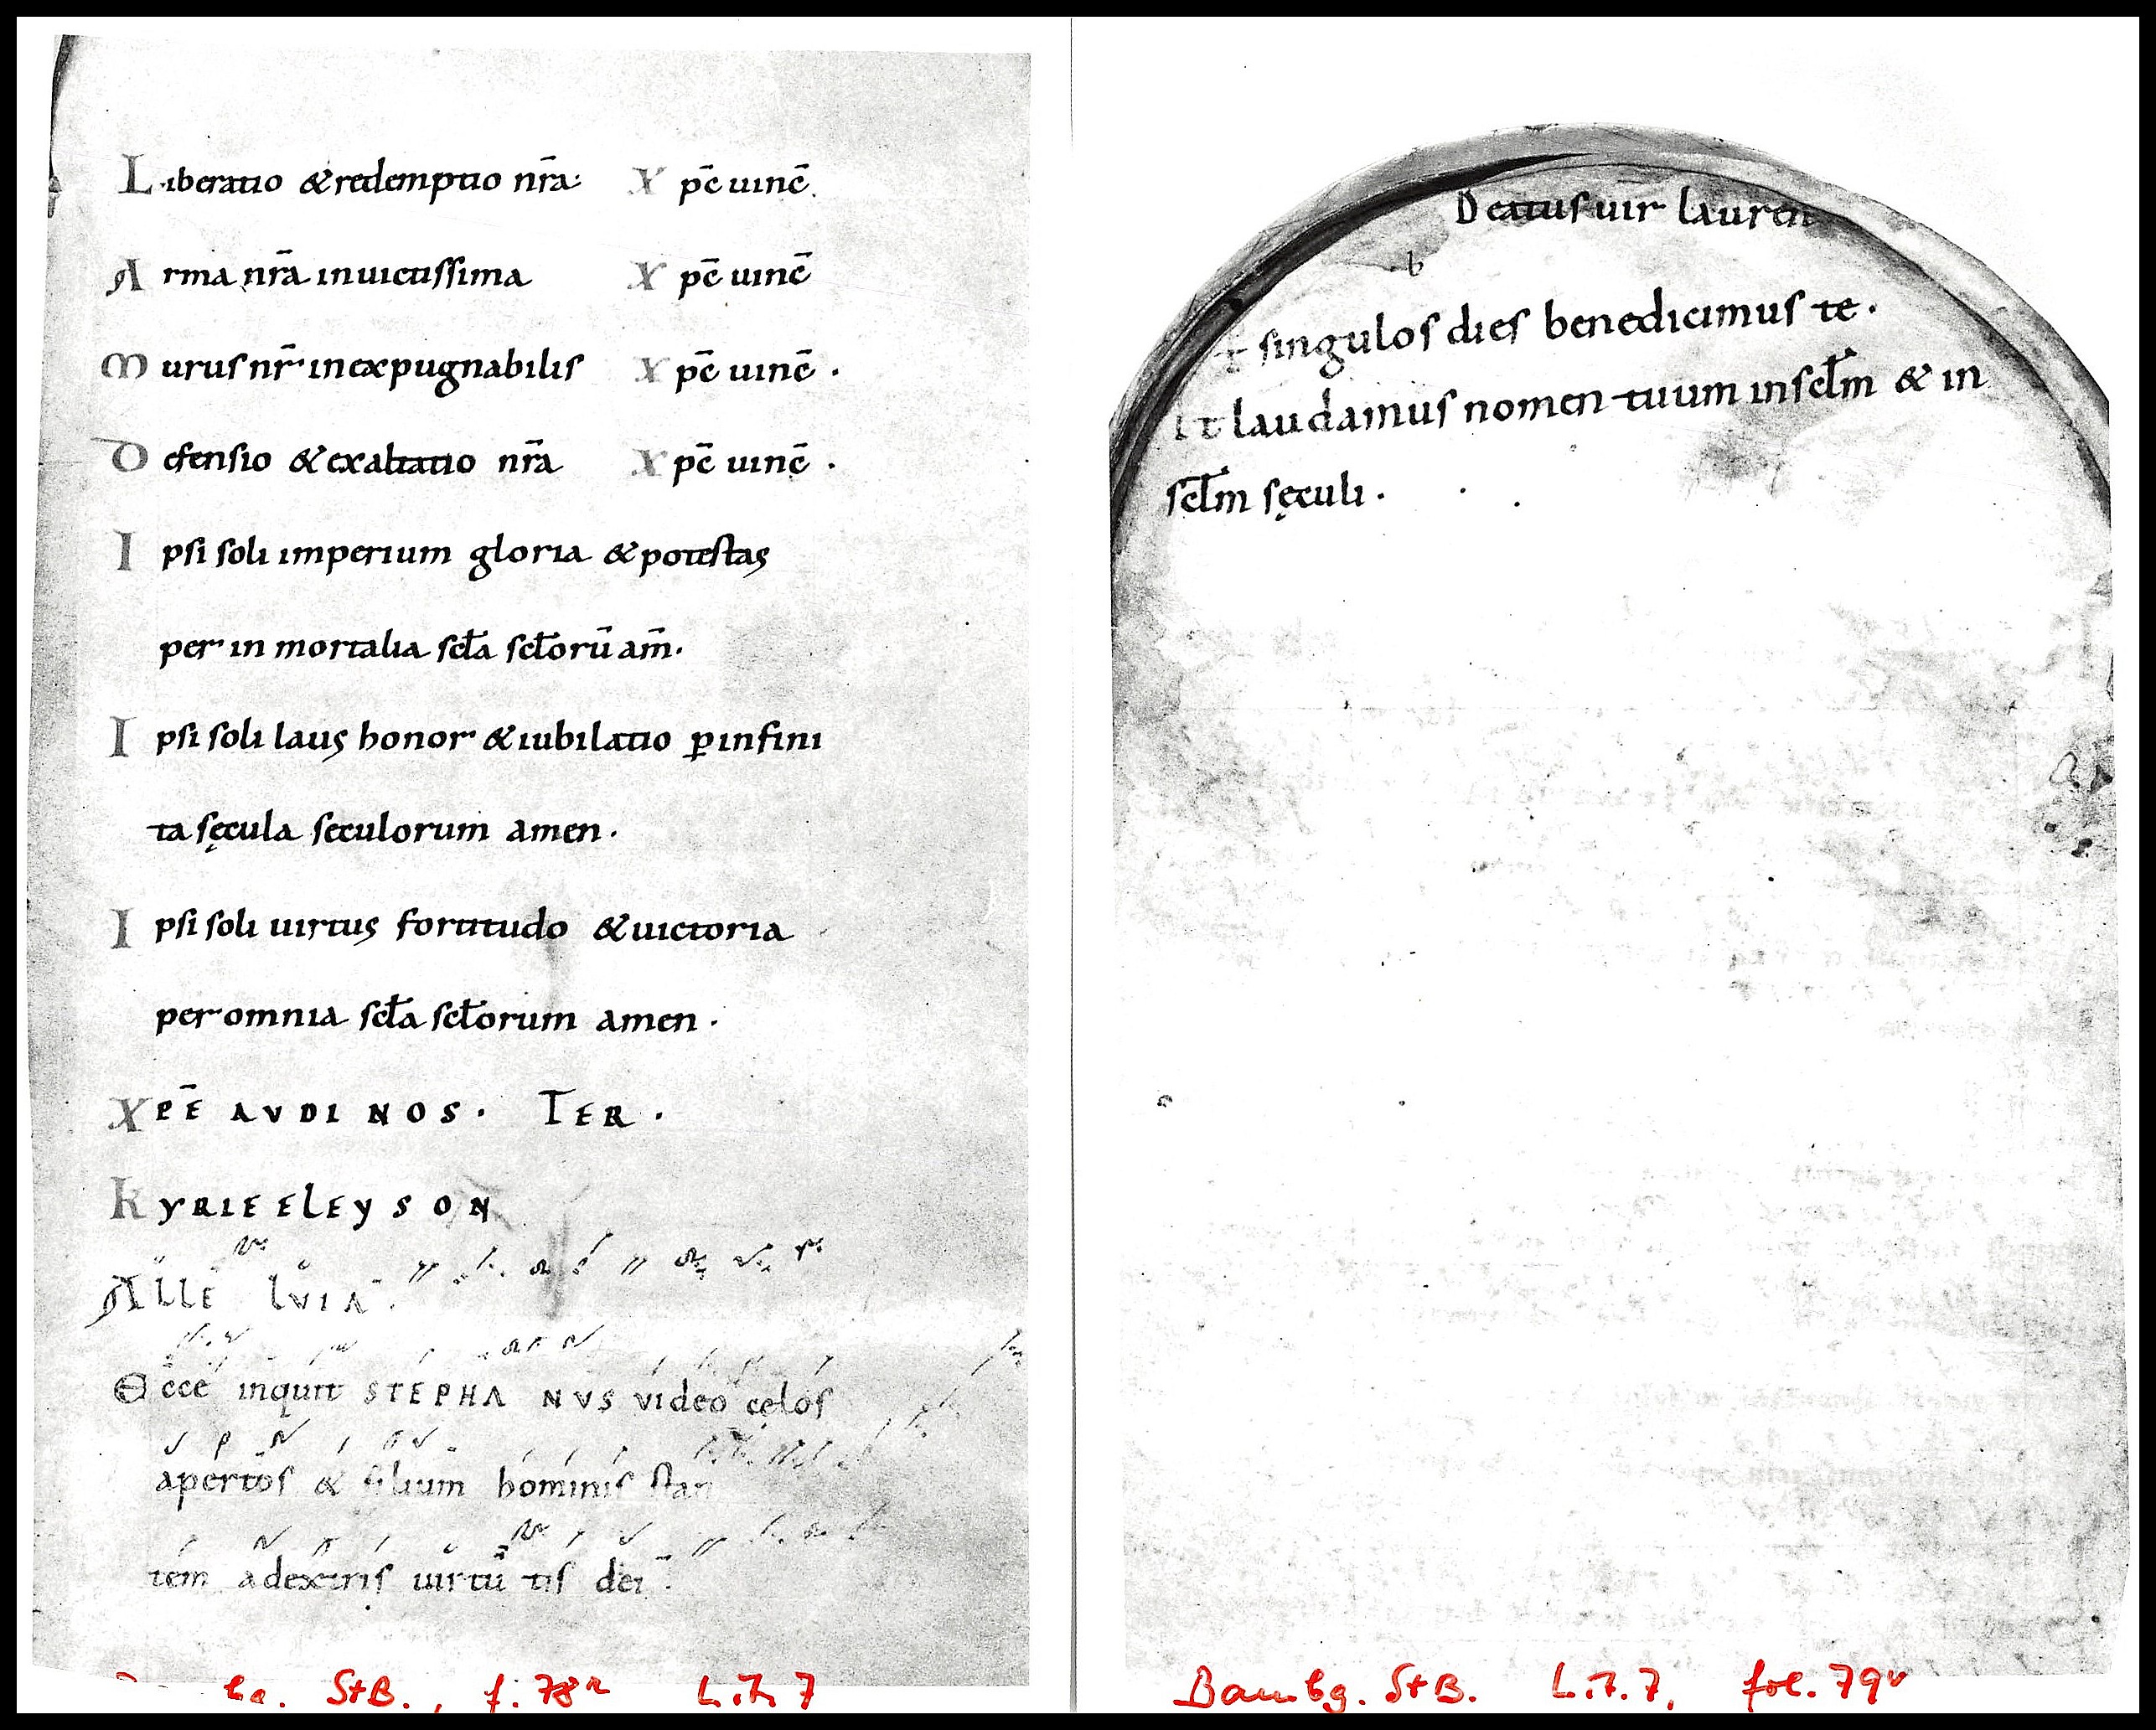 Liberatio & redemptio nr̄a· Xpē uinc̄.
Arma nr̄a inuictissima Xpē uinc̄
Murus nr̄ inexpugnabilis Xpē uinc̄ ·
Defensio & exaltatio nr̄a Xpē uinc̄ ·
Ipsi soli imperium gloria & potestas
per inmortalia scl̄a scl̄orū am̄·
Ipsi soli laus honor & iubilatio ꝑ infini
ta sęcula seculorum amen ·
Ipsi soli uirtus fortitudo & uictoria
per omnia scl̄a scl̄orum amen ·
XPĒ AVDI NOS · TER ·
KYRIEELEYSON
ALLE LVIA ·
Ecce inquit STEPHA NVS video cęlos
apertos & filium hominis stan
tem adextris uirtu tis dei ·
ba. StB., f. 78r L.7. 7
Beatus uir lauren
b
singulos dies benedicimus te ·
Et laudamus nomen tuum inscl̄m & in
scl̄m sęculi ·
Bambg. StB. L.7.7, fol. 79v